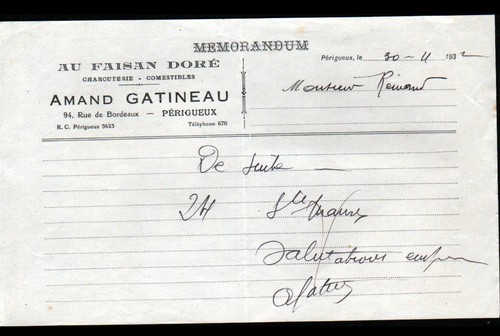 MEMORANDUM
AU FAISAN DORÉ
CHARCUTERIE - COMESTIBLES
AMAND GATINEAU
94, Rue de Bordeaux — PÉRIGUEUX
R. C. Périgueux 5625 Téléphone 670
Périgueux, le 30-11 1932
Monsieur
De suite —
24
Salutations